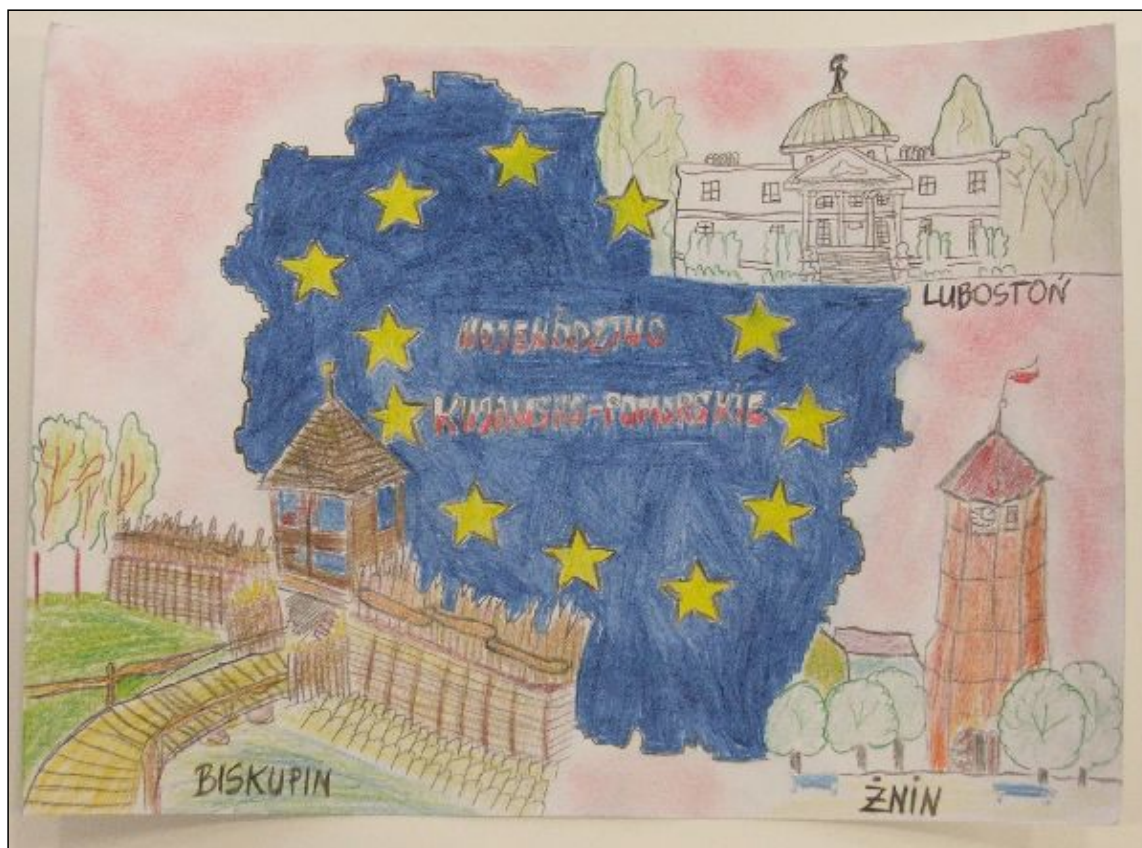 LUBOSTOŃ
WOJEWÓDZTWO
KUJAWSKO-POMORSKIE
BISKUPIN
ŻNIN